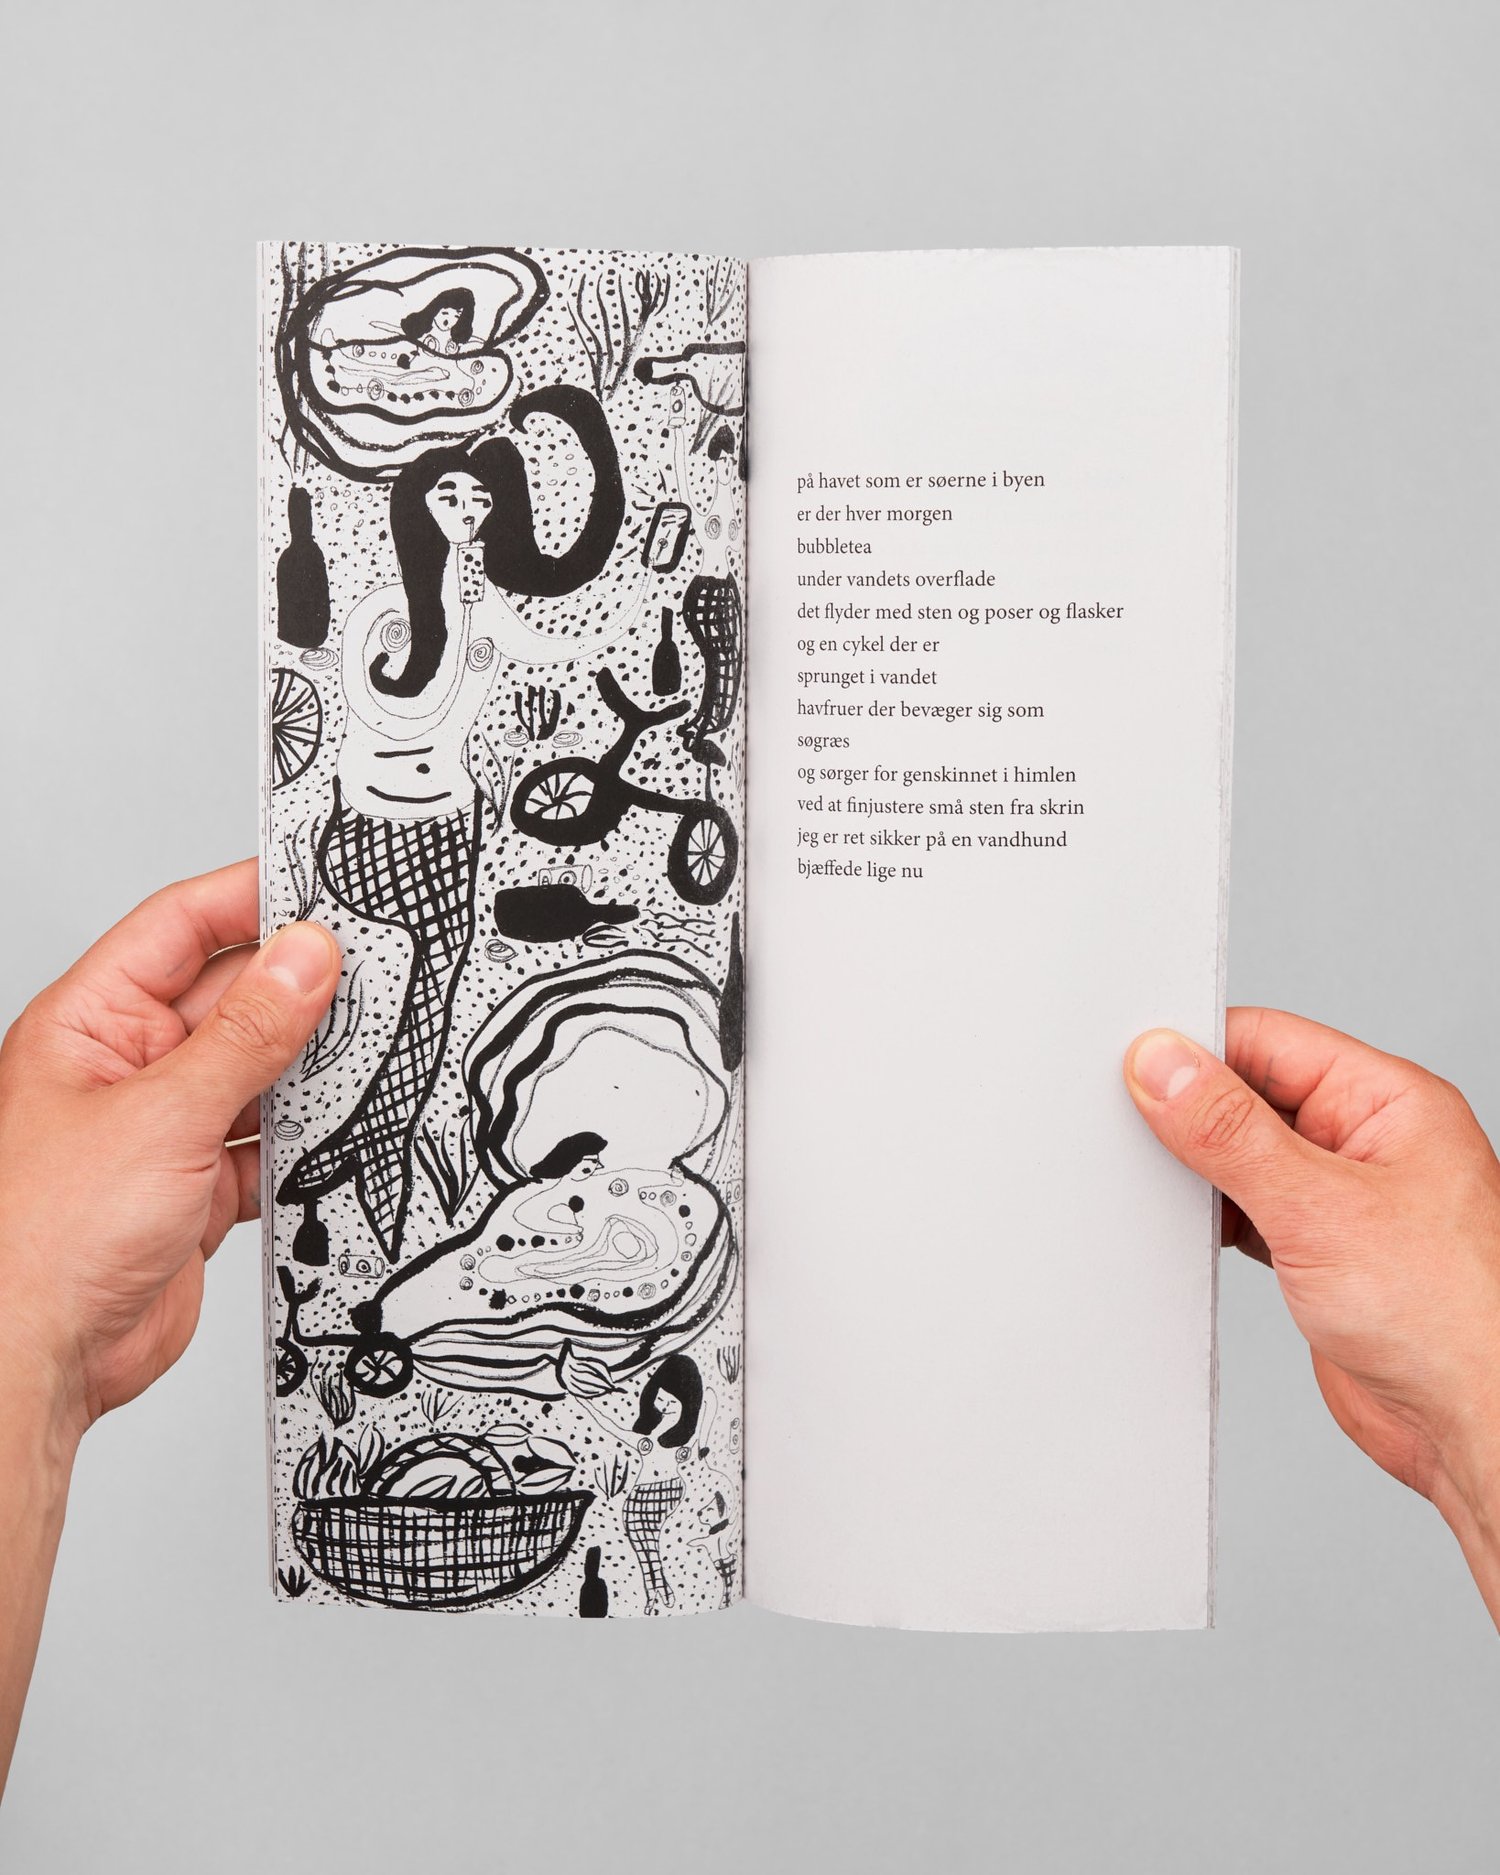 på havet som er søerne i byen
er der hver morgen
bubbletea
under vandets overflade
det flyder med sten og poser og flasker
og en cykel der er
sprunget i vandet
havfruer der bevæger sig som
søgræs
og sørger for genskinnet i himlen
ved at finjustere små sten fra skrin
jeg er ret sikker på en vandhund
bjæffede lige nu